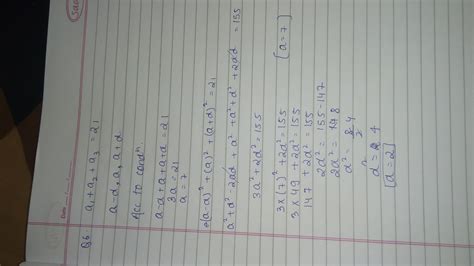 Date
Q6
a₁ + a₂ + a₃ = 21
a-d, a, a+d
Acc to condⁿ.
a-d + a + a+d = 21
3a = 21
a = 7
(a-d)² + (a)² + (a+d)² = 21
a² + d² - 2ad + a² + a² + d² + 2ad = 155
3a² + 2d² = 155
3×(7)² + 2d² = 155 [a=7]
3×49 + 2d² = 155
147 + 2d² = 155
2d² = 155-147
2d² = 8
d² = 4
[d=2]